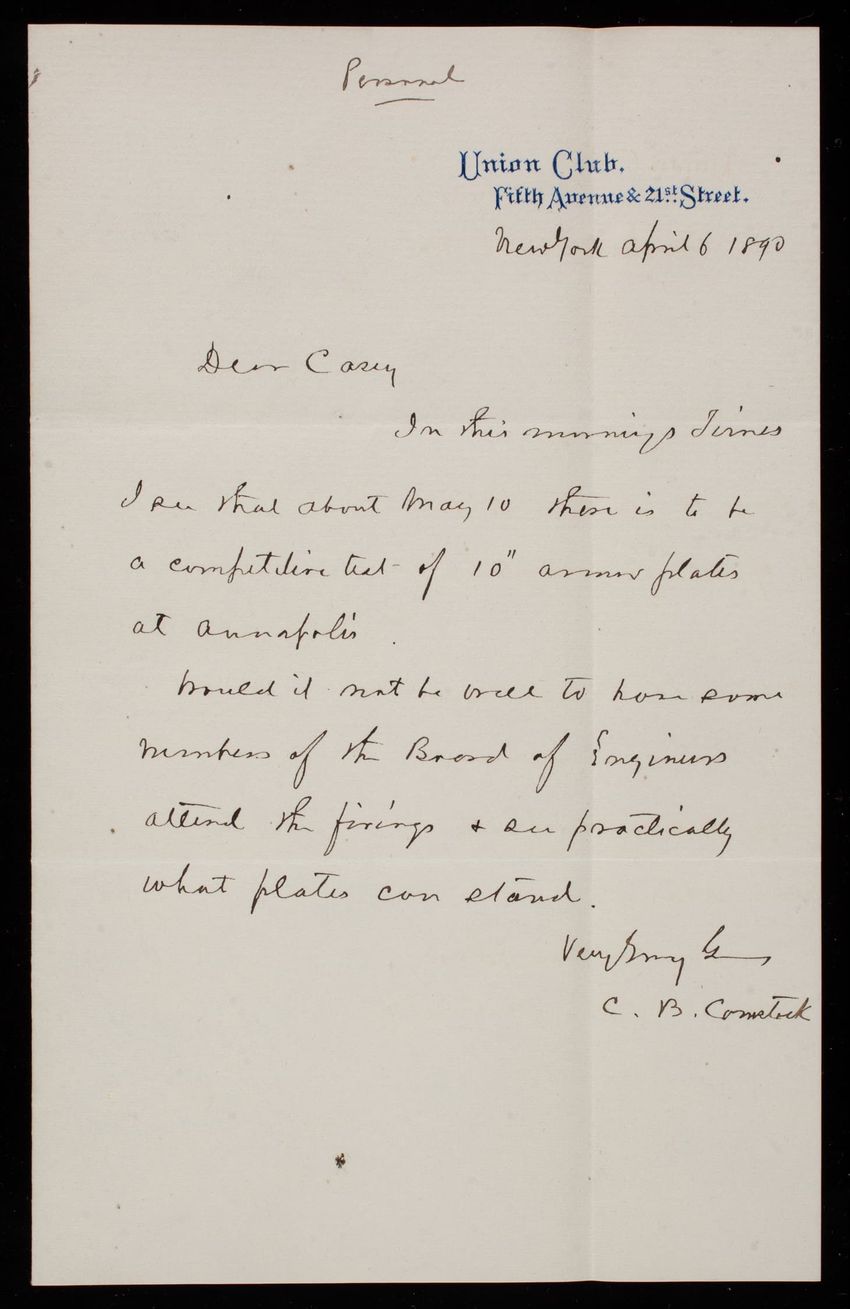 Personal
Union Club.
Fifth Avenue & 21st. Street.
New York April 6 1890
Dear Casey
In this mornings Times
I see that about May 10 there is to be
a competitive test of 10" armor plates
at Annapolis.
Would it not be well to have some
members of the Board of Engineers
attend the firings & see practically
what plates can stand.
Very Truly Yours
C. B. Comstock